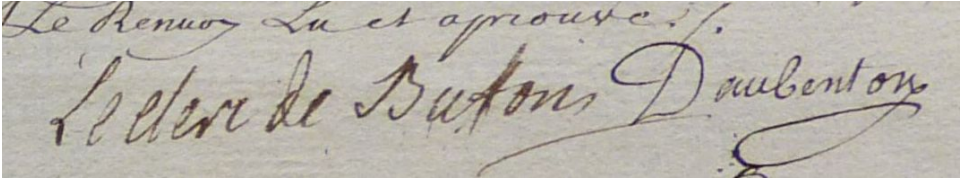 Le Renvoy Lu et aprouvé ./.
Leclerc de Buffon Daubenton